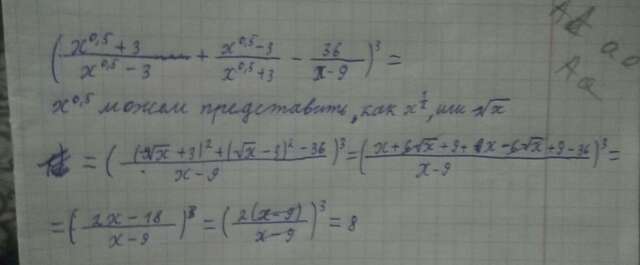 (x^0,5 + 3 / x^0,5 - 3 + x^0,5 - 3 / x^0,5 + 3 - 36 / x - 9)^3 =
x^0,5 можем представить, как x^1/2, или √x
= ((√x + 3)^2 + (√x - 3)^2 - 36 / x - 9)^3 = (x + 6√x + 9 + x - 6√x + 9 - 36 / x - 9)^3 =
= (2x - 18 / x - 9)^3 = (2(x - 9) / x - 9)^3 = 8